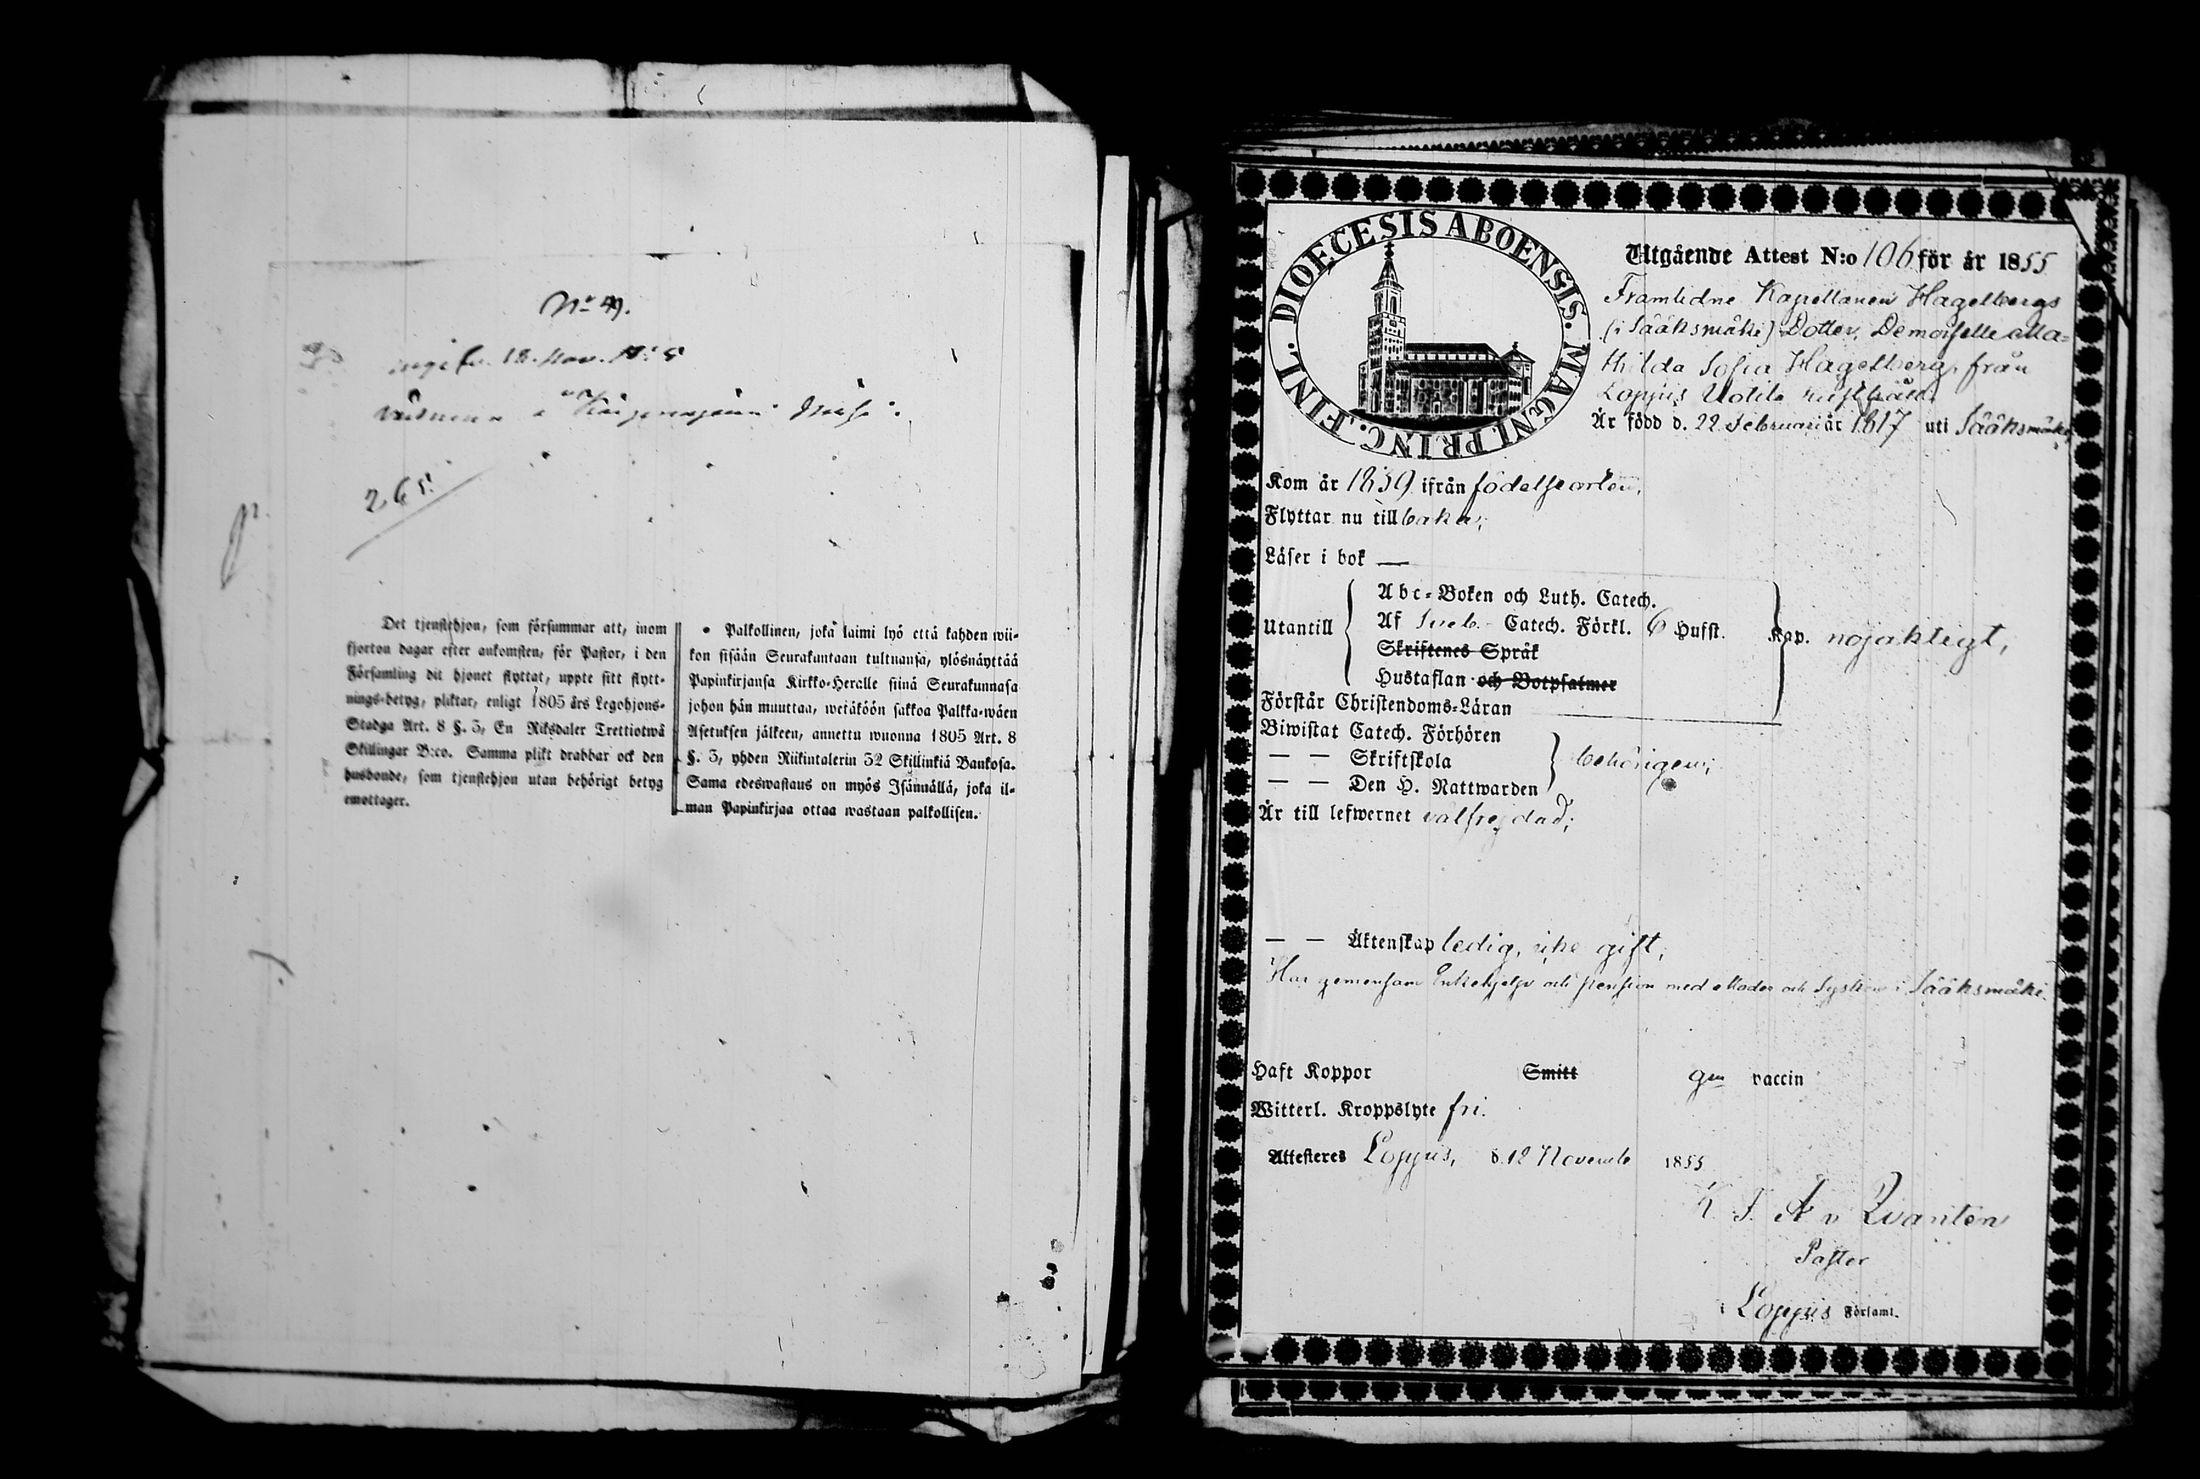 No 49.
18. Nov.
265.
Det tjenstehjon, som försummar att, inom
fjorton dagar efter ankomsten, för Pastor, i den
Församling dit hjonet flyttat, uppte sitt flytt-
nings-betyg, pliktar, enligt 1805 års Legohjons-
Stadga Art. 8 §. 3, En Riksdaler Trettiotwå
Skillingar B:co. Samma plikt drabbar ock den
husbonde, som tjenstehjon utan behörigt betyg
emottager.
Palkollinen, joka laimi lyö että kahden wii-
kon sisään Seurakuntaan tultuansa, ylösnäyttää
Papinkirjansa Kirkko-Heralle siinä Seurakunnasa
johon hän muuttaa, wetäköön sakkoa Palkka-wäen
Asetuksen jälkeen, annettu wuonna 1805 Art. 8
§. 3, yhden Riikintalerin 32 Skillinkiä Bankosa.
Sama edeswastaus on myös Isännällä, joka il-
man Papinkirjaa ottaa wastaan palkollisen.
DIOECESIS ABOENSIS. MAGNI. PRINC. FINL.
Utgående Attest N:o 106 för år 1855
Framledne Kapellanen Hagelbergs
(i Sääksmäki) Dotter, Demoiselle Ma-
thilda Sofia Hagelberg, från
Loppis Uotila
Är född d. 22 Februari år 1817 uti Sääksmäki,
Kom år 1839 ifrån födelseorten,
Flyttar nu tillbaka;
Läser i bok —
Utantill
Abc-Boken och Luth. Catech.
Af Sveb. Catech. Förkl. 6 Hufst. Kap. nöjaktigt,
Skriftenes Språk
Hustaflan och Botpsalmer
Förstår Christendoms-Läran
Biwistat Catech. Förhören
— — Skriftskola behörigen;
— — Den H. Nattwarden
Är till lefwernet välfrejdad;
— — Äktenskap ledig, icke gift;
Har gemensam Enkehjelp och pension med Moder och Systrar i Sääksmäki.
Haft Koppor Smitt gm vaccin
Witterl. Kroppslyte fri.
Attesteres Loppis, d. 12 Novemb 1855
K. J. A v Qvanten
Pastor
i Loppis Församl.